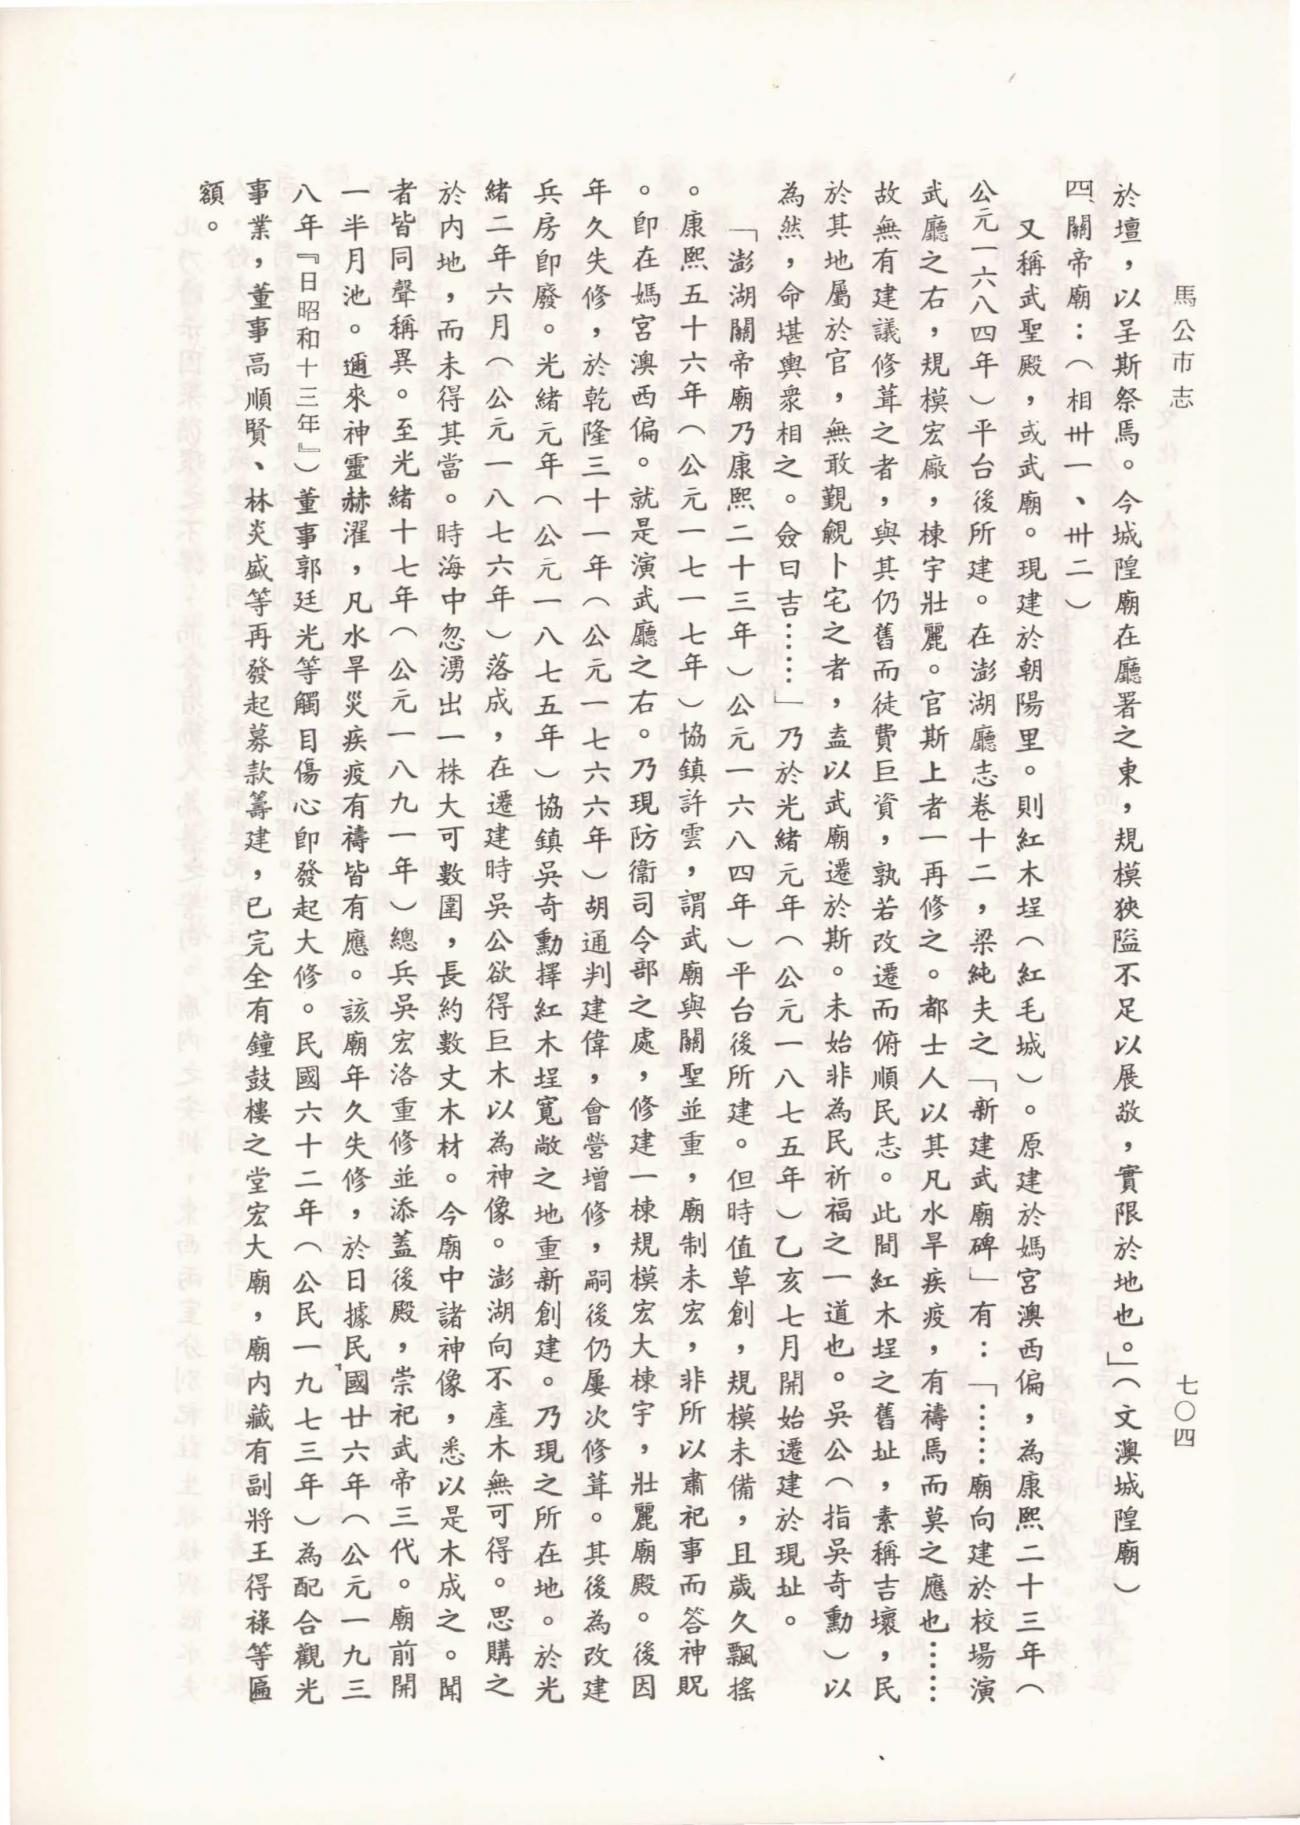 馬公市志
七〇四
於壇，以呈斯祭馬。今城隍廟在廳署之東，規模狹隘不足以展敬，實限於地也。」（文澳城隍廟）
四、關帝廟：（相卅一、卅二）
又稱武聖殿，或武廟。現建於朝陽里。則紅木埕（紅毛城）。原建於媽宮澳西偏，為康熙二十三年（
公元一六八四年）平台後所建。在澎湖廳志卷十二，梁純夫之「新建武廟碑」有：「……廟向建於校場演
武廳之右，規模宏廠，棟宇壯麗。官斯上者一再修之。都士人以其凡水旱疾疫，有禱馬而莫之應也……
故無有建議修葺之者，與其仍舊而徒費巨資，孰若改遷而俯順民志。此間紅木埕之舊址，素稱吉壤，民
於其地屬於官，無敢覬覦卜宅之者，盍以武廟遷於斯。未始非為民祈福之一道也。吳公（指吳奇勳）以
為然，命堪輿衆相之。僉曰吉……」乃於光緒元年（公元一八七五年）乙亥七月開始遷建於現址。
「澎湖關帝廟乃康熙二十三年）公元一六八四年）平台後所建。但時值草創，規模未備，且歲久飄搖
。康熙五十六年（公元一七一七年）協鎮許雲，謂武廟與關聖並重，廟制未宏，非所以肅祀事而答神貺
。卽在媽宮澳西偏。就是演武廳之右。乃現防衞司令部之處，修建一棟規模宏大棟宇，壯麗廟殿。後因
年久失修，於乾隆三十一年（公元一七六六年）胡通判建偉，會營增修，嗣後仍屢次修葺。其後為改建
兵房卽廢。光緒元年（公元一八七五年）協鎮吳奇勳擇紅木埕寬敞之地重新創建。乃現之所在地。於光
緒二年六月（公元一八七六年）落成，在遷建時吳公欲得巨木以為神像。澎湖向不產木無可得。思購之
於內地，而未得其當。時海中忽湧出一株大可數圍，長約數丈木材。今廟中諸神像，悉以是木成之。聞
者皆同聲稱異。至光緒十七年（公元一八九一年）總兵吳宏洛重修並添蓋後殿，崇祀武帝三代。廟前開
一半月池。邇來神靈赫濯，凡水旱災疾疫有禱皆有應。該廟年久失修，於日據民國廿六年（公元一九三
八年『日昭和十三年』）董事郭廷光等觸目傷心卽發起大修。民國六十二年（公民一九七三年）為配合觀光
事業，董事高順賢、林炎盛等再發起募款籌建，已完全有鐘鼓樓之堂宏大廟，廟內藏有副將王得祿等匾
額。